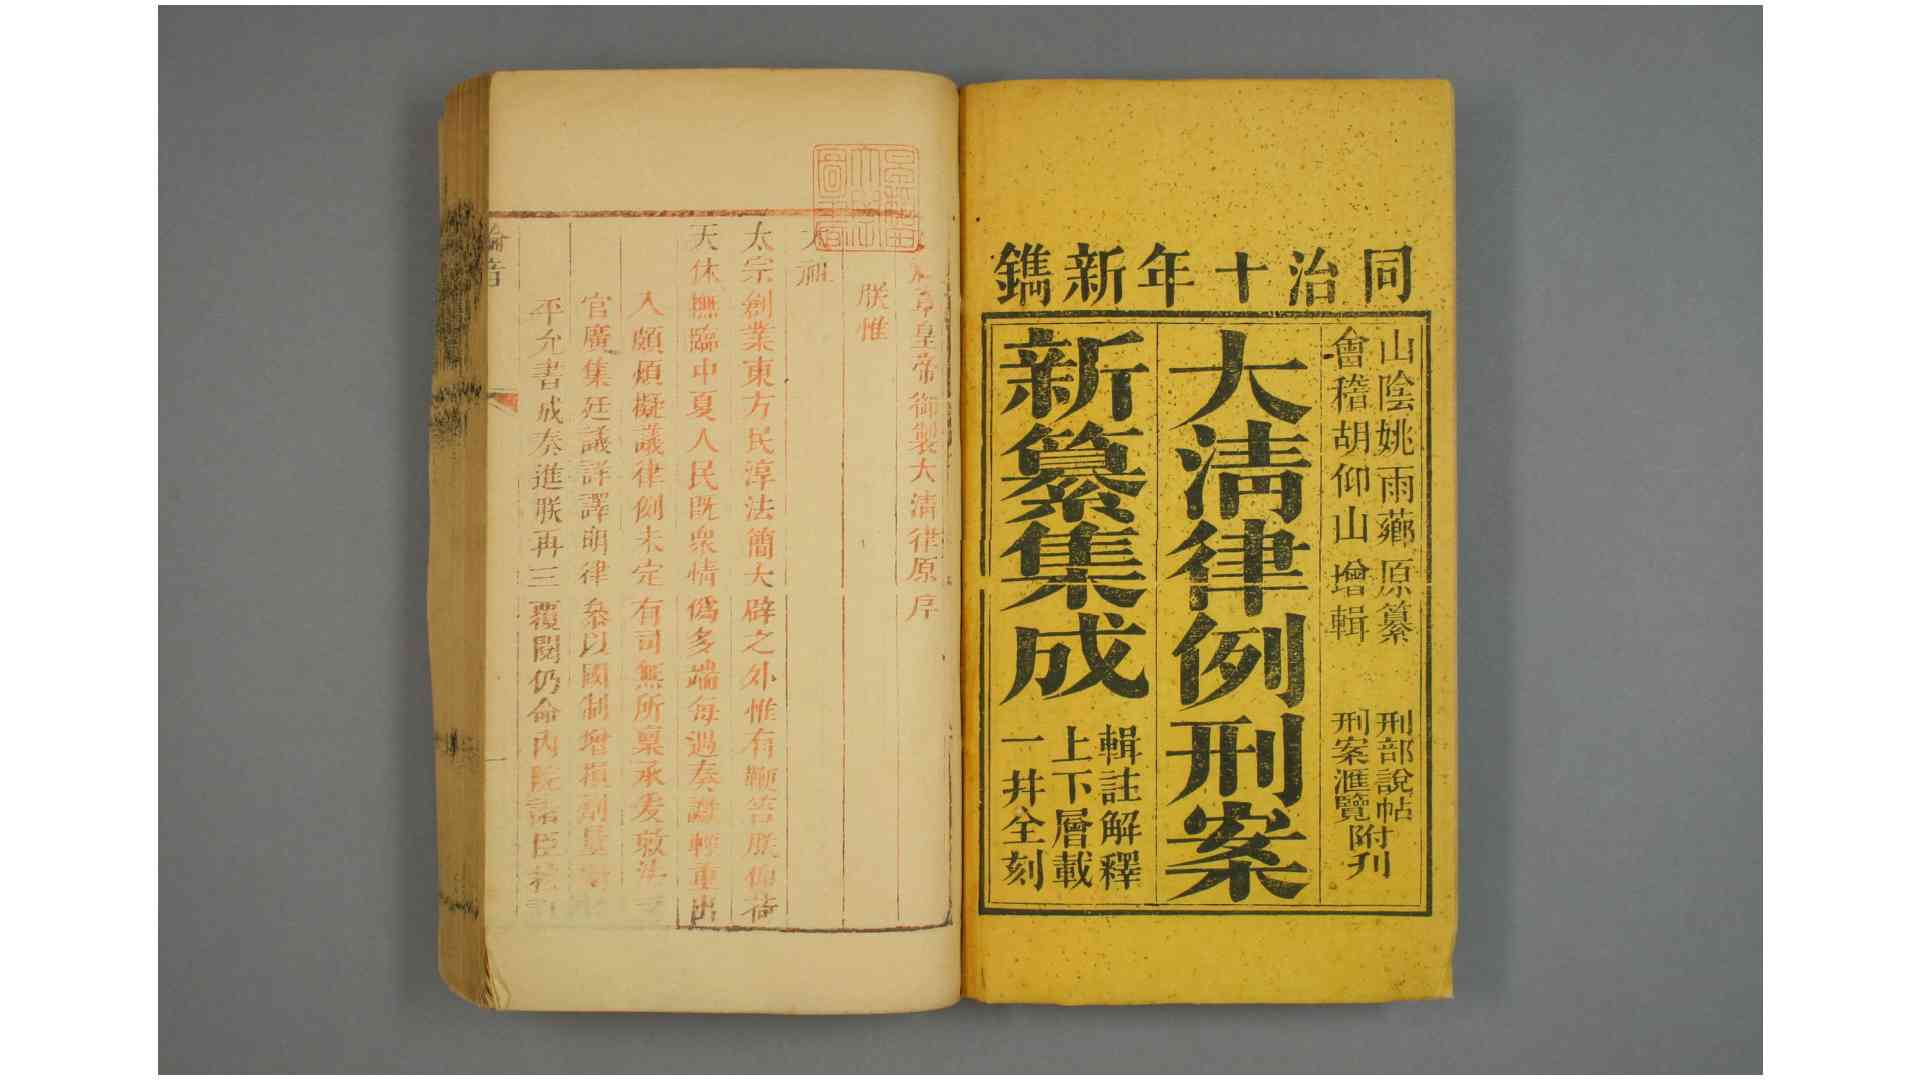 同治十年新鐫
山陰姚雨薌原纂
會稽胡仰山增輯
刑部說帖
刑案滙覽
附刊
大清律例刑案
新纂集成
輯註解釋
上下層載
一幷全刻
章皇帝御製大清律原序
朕惟
太祖
太宗創業東方民淳法簡大辟之外惟有鞭笞朕仰荷
天休撫臨中夏人民既衆情僞多端每遇奏讞輕重出
入頗煩擬議律例未定有司無所稟承爰敕法司
官廣集廷議詳譯明律叅以國制增損劑量期於
平允書成奏進朕再三覆閱仍命內院諸臣校訂